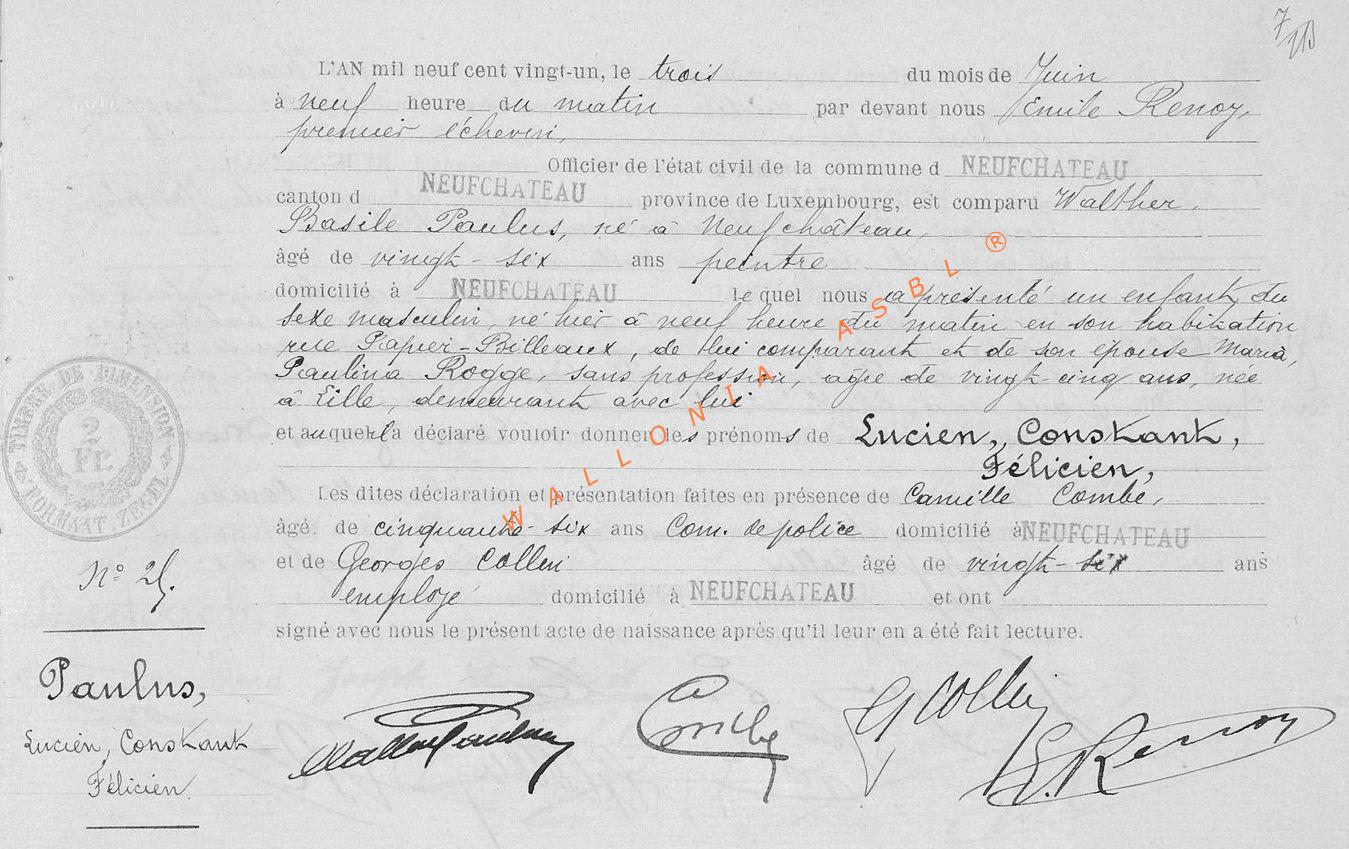 7
L'AN mil neuf cent vingt-un, le trois du mois de Juin
à neuf heure du matin par devant nous Emile Renoy,
premier échevin,
Officier de l'état civil de la commune d NEUFCHATEAU
canton d NEUFCHATEAU province de Luxembourg, est comparu Walther,
Basile Paulus, né à Neufchâteau,
âgé de vingt-six ans peintre
domicilié à NEUFCHATEAU lequel nous a présenté un enfant du
sexe masculin, né hier à neuf heure du matin en son habitation
rue Papier-Billeaux, de lui comparant et de son épouse Maria,
Paulina Rogge, sans profession, agée de vingt-cinq ans, née
à Lille, demeurant avec lui
et auquel il a déclaré vouloir donner les prénoms de Lucien, Constant,
Félicien,
Les dites déclaration et présentation faites en présence de Camille Combe,
âgé de cinquante-six ans Com. de police domicilié à NEUFCHATEAU
et de Georges Collin âgé de vingt-six ans
employé domicilié à NEUFCHATEAU et ont
signé avec nous le présent acte de naissance après qu'il leur en a été fait lecture.
TIMBRE DE DIMENSION
2
Fr.
FORMAAT ZEGEL
N° 25.
Paulus,
Lucien, Constant
Félicien
Walther Paulus
Combe
G Collin
E. Renoy
WALLONIA ASBL ®